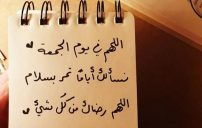 اللهم في يوم الجمعة
نسألك أيامًا تمر بسلام
اللهم رضاك عن كل شيء